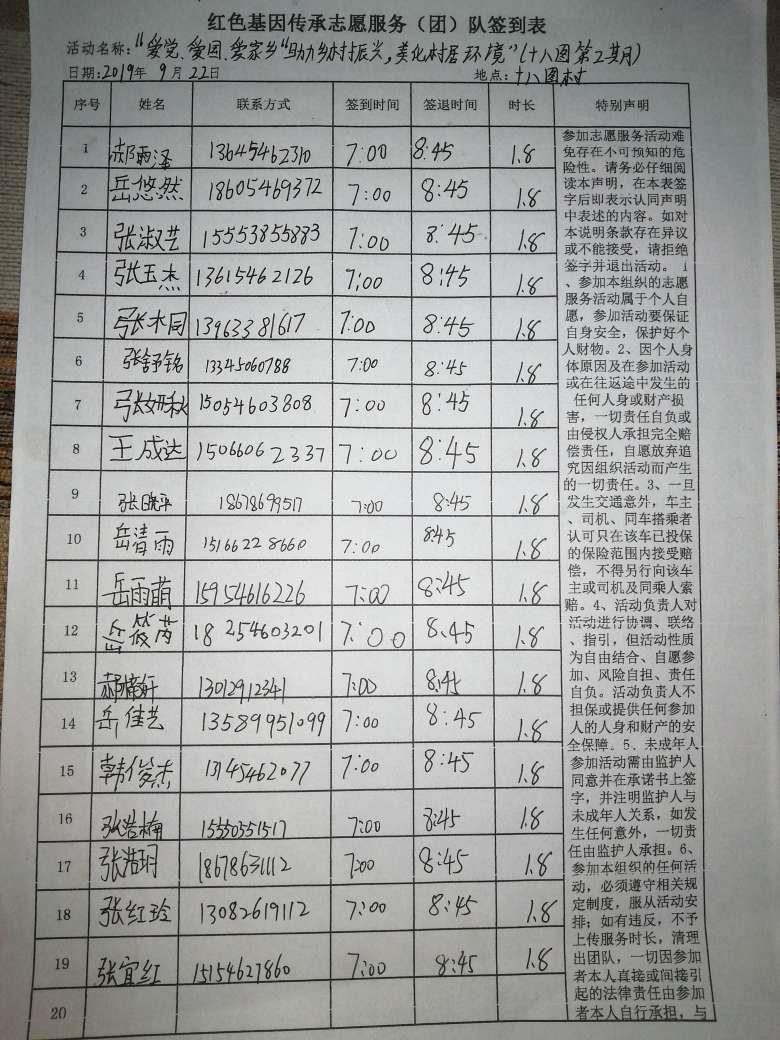 红色基因传承志愿服务（团）队签到表
活动名称："爱党、爱国、爱家乡"助力乡村振兴,美化村居环境"(十八图第2其月)
日期:2019年 9月 22日 地点:十八图村
序号 姓名 联系方式 签到时间 签退时间 时长 特别声明
1 郝雨泽 13645462310 7:00 8:45 1.8
2 岳悠然 18605469372 7:00 8:45 1.8
3 张淑艺 15553855883 7:00 8:45 1.8
4 张玉杰 13615462126 7:00 8:45 1.8
5 张木同 13963381617 7:00 8:45 1.8
6 张舒铭 13345060788 7:00 8:45 1.8
7 张妍秋 15054603808 7:00 8:45 1.8
8 王成达 15066062337 7:00 8:45 1.8
9 张晓平 18678699517 7:00 8:45 1.8
10 岳清雨 15166228660 7:00 8:45 1.8
11 岳雨萌 15954616226 7:00 8:45 1.8
12 岳筱芮 18254603201 7:00 8:45 1.8
13 郝楠轩 13012912341 7:00 8:45 1.8
14 岳佳艺 13589951099 7:00 8:45 1.8
15 韩俊杰 13145462077 7:00 8:45 1.8
16 张浩楠 15550551517 7:00 8:45 1.8
17 张浩玥 18678631112 7:00 8:45 1.8
18 张红玲 13082619112 7:00 8:45 1.8
19 张宜红 15154627860 7:00 8:45 1.8
20
参加志愿服务活动难
免存在不可预知的危
险性。请务必仔细阅
读本声明，在本表签
字后即表示认同声明
中表述的内容。如对
本说明条款存在异议
或不能接受，请拒绝
签字并退出活动。 1
、参加本组织的志愿
服务活动属于个人自
愿，参加活动要保证
自身安全，保护好个
人财物。2、因个人身
体原因及在参加活动
或在往返途中发生的
任何人身或财产损
害，一切责任自负或
由侵权人承担完全赔
偿责任，自愿放弃追
究因组织活动而产生
的一切责任。3、一旦
发生交通意外，车主
、司机、同车搭乘者
认可只在该车已投保
的保险范围内接受赔
偿，不得另行向该车
主或司机及同乘人索
赔。4、活动负责人对
活动进行协调、联络
、指引，但活动性质
为自由结合、自愿参
加、风险自担、责任
自负。活动负责人不
担保或提供任何参加
人的人身和财产的安
全保障。5、未成年人
参加活动需由监护人
同意并在承诺书上签
字，并注明监护人与
未成年人关系，如发
生任何意外，一切责
任由监护人承担。6、
参加本组织的任何活
动，必须遵守相关规
定制度，服从活动安
排；如有违反，不予
上传服务时长，清理
出团队，一切因参加
者本人直接或间接引
起的法律责任由参加
者本人自行承担，与